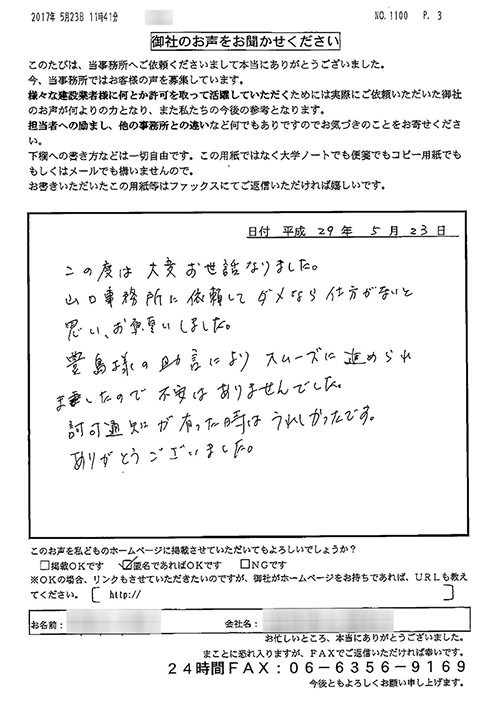 2017年 5月23日 11時41分
NO. 1100 P. 3
御社のお声をお聞かせください
このたびは、当事務所へご依頼くださいまして本当にありがとうございました。
今、当事務所ではお客様の声を募集しています。
様々な建設業者様に何とか許可を取って活躍していただくためには実際にご依頼いただいた御社
のお声が何よりの力となり、また私たちの今後の参考となります。
担当者への励まし、他の事務所との違いなど何でもありですのでお気づきのことをお寄せくださ
い。
下欄への書き方などは一切自由です。この用紙ではなく大学ノートでも便箋でもコピー用紙でも
もしくはメールでも構いませんので。
お書きいただいたこの用紙等はファックスにてご返信いただければ嬉しいです。
日付 平成 29年 5月 23日
この度は 大変 お世話なりました。
山口事務所に依頼して ダメなら仕方がないと
思い、お願いしました。
豊島様の助言により スムーズに進められ
ましたので 不安はありませんでした。
許可通知が有った時は うれしかったです。
ありがとうございました。
このお声を私どものホームページに掲載させていただいてもよろしいでしょうか?
□掲載OKです ☑匿名であればOKです □NGです
※OKの場合、リンクもさせていただきたいのですが、御社がホームページをお持ちであれば、URLも教え
てください。 [ http:// ]
お名前: 会社名:
お忙しいところ、本当にありがとうございました。
まことに恐れ入りますが、FAXでご返信いただければ幸いです。
24時間FAX:06-6356-9169
今後ともよろしくお願い申し上げます。